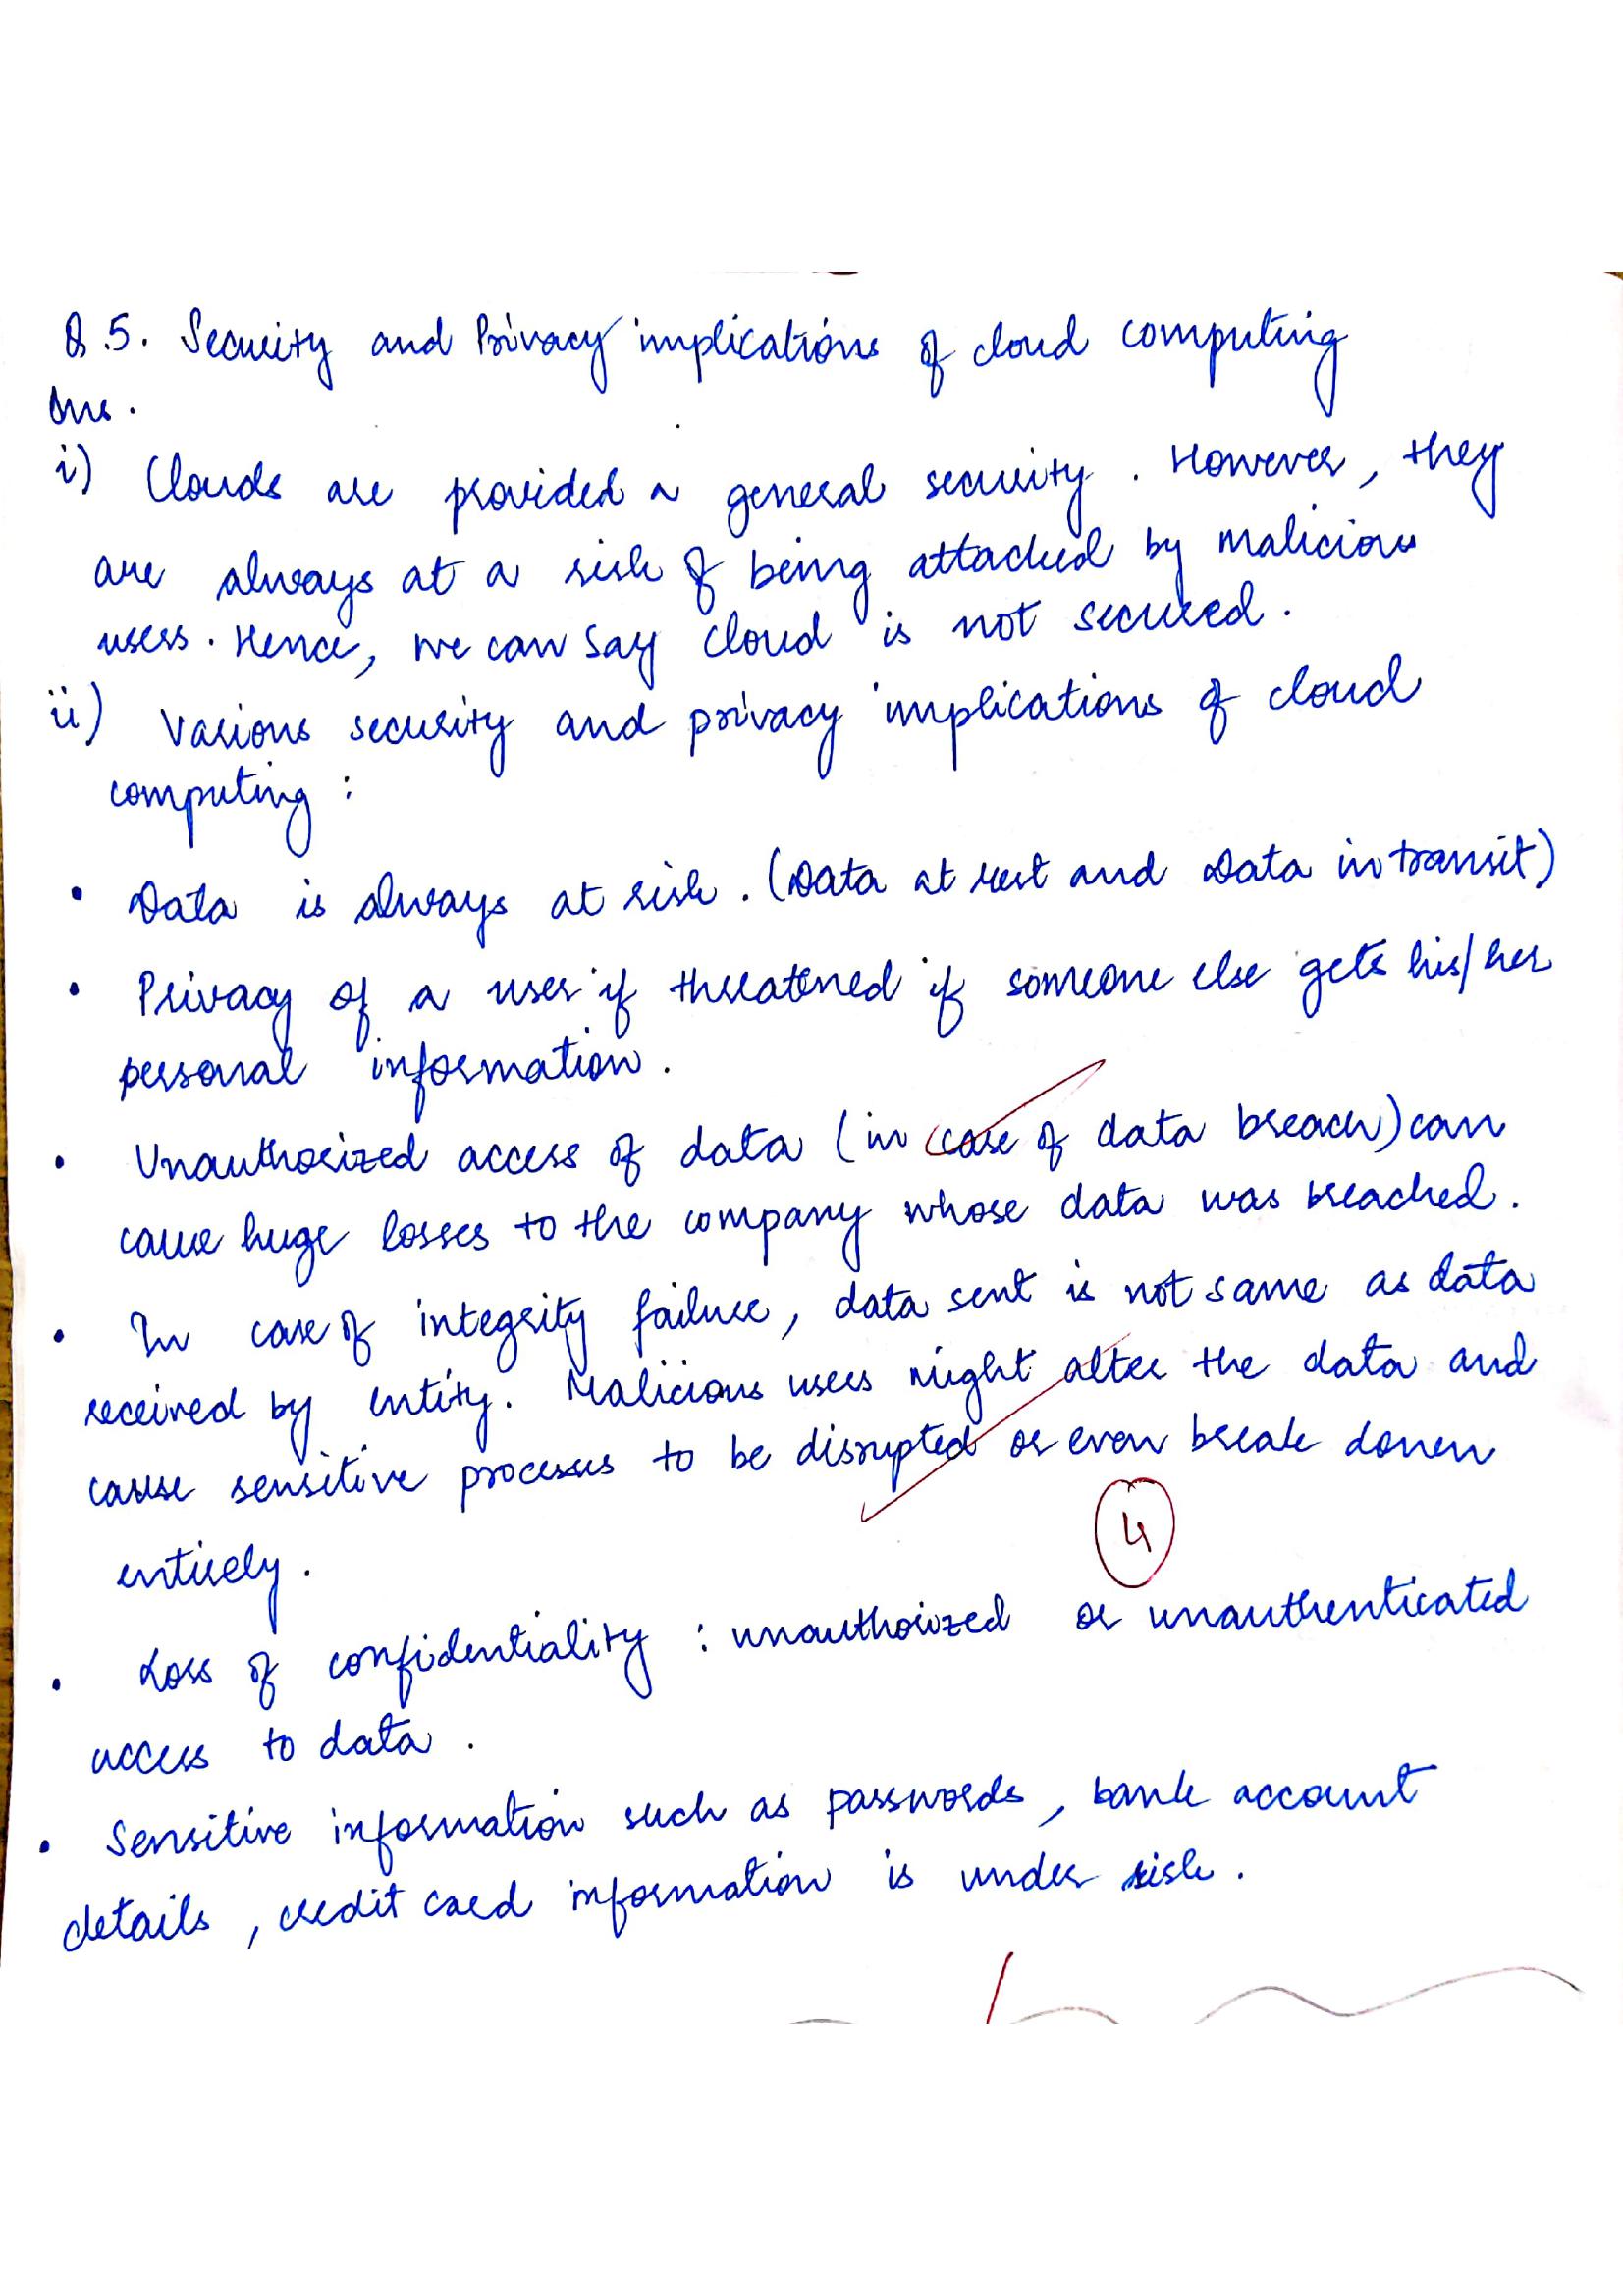 Q.5. Security and Privacy implications of cloud computing
Ans.
i) Clouds are provided a general security. However, they
are always at a risk of being attacked by malicious
users. Hence, we can say cloud is not secured.
ii) Various security and privacy implications of cloud
computing :
• Data is always at risk. (Data at rest and Data in transit)
• Privacy of a user if threatened if someone else gets his/her
personal information.
• Unauthorized access of data (in case of data breach) can
cause huge losses to the company whose data was breached.
• In case of integrity failure, data sent is not same as data
received by entity. Malicious users might alter the data and
cause sensitive processes to be disrupted or even break down
4
entirely.
• Loss of confidentiality : unauthorized or unauthenticated
access to data.
• Sensitive information such as passwords, bank account
details, credit card information is under risk.